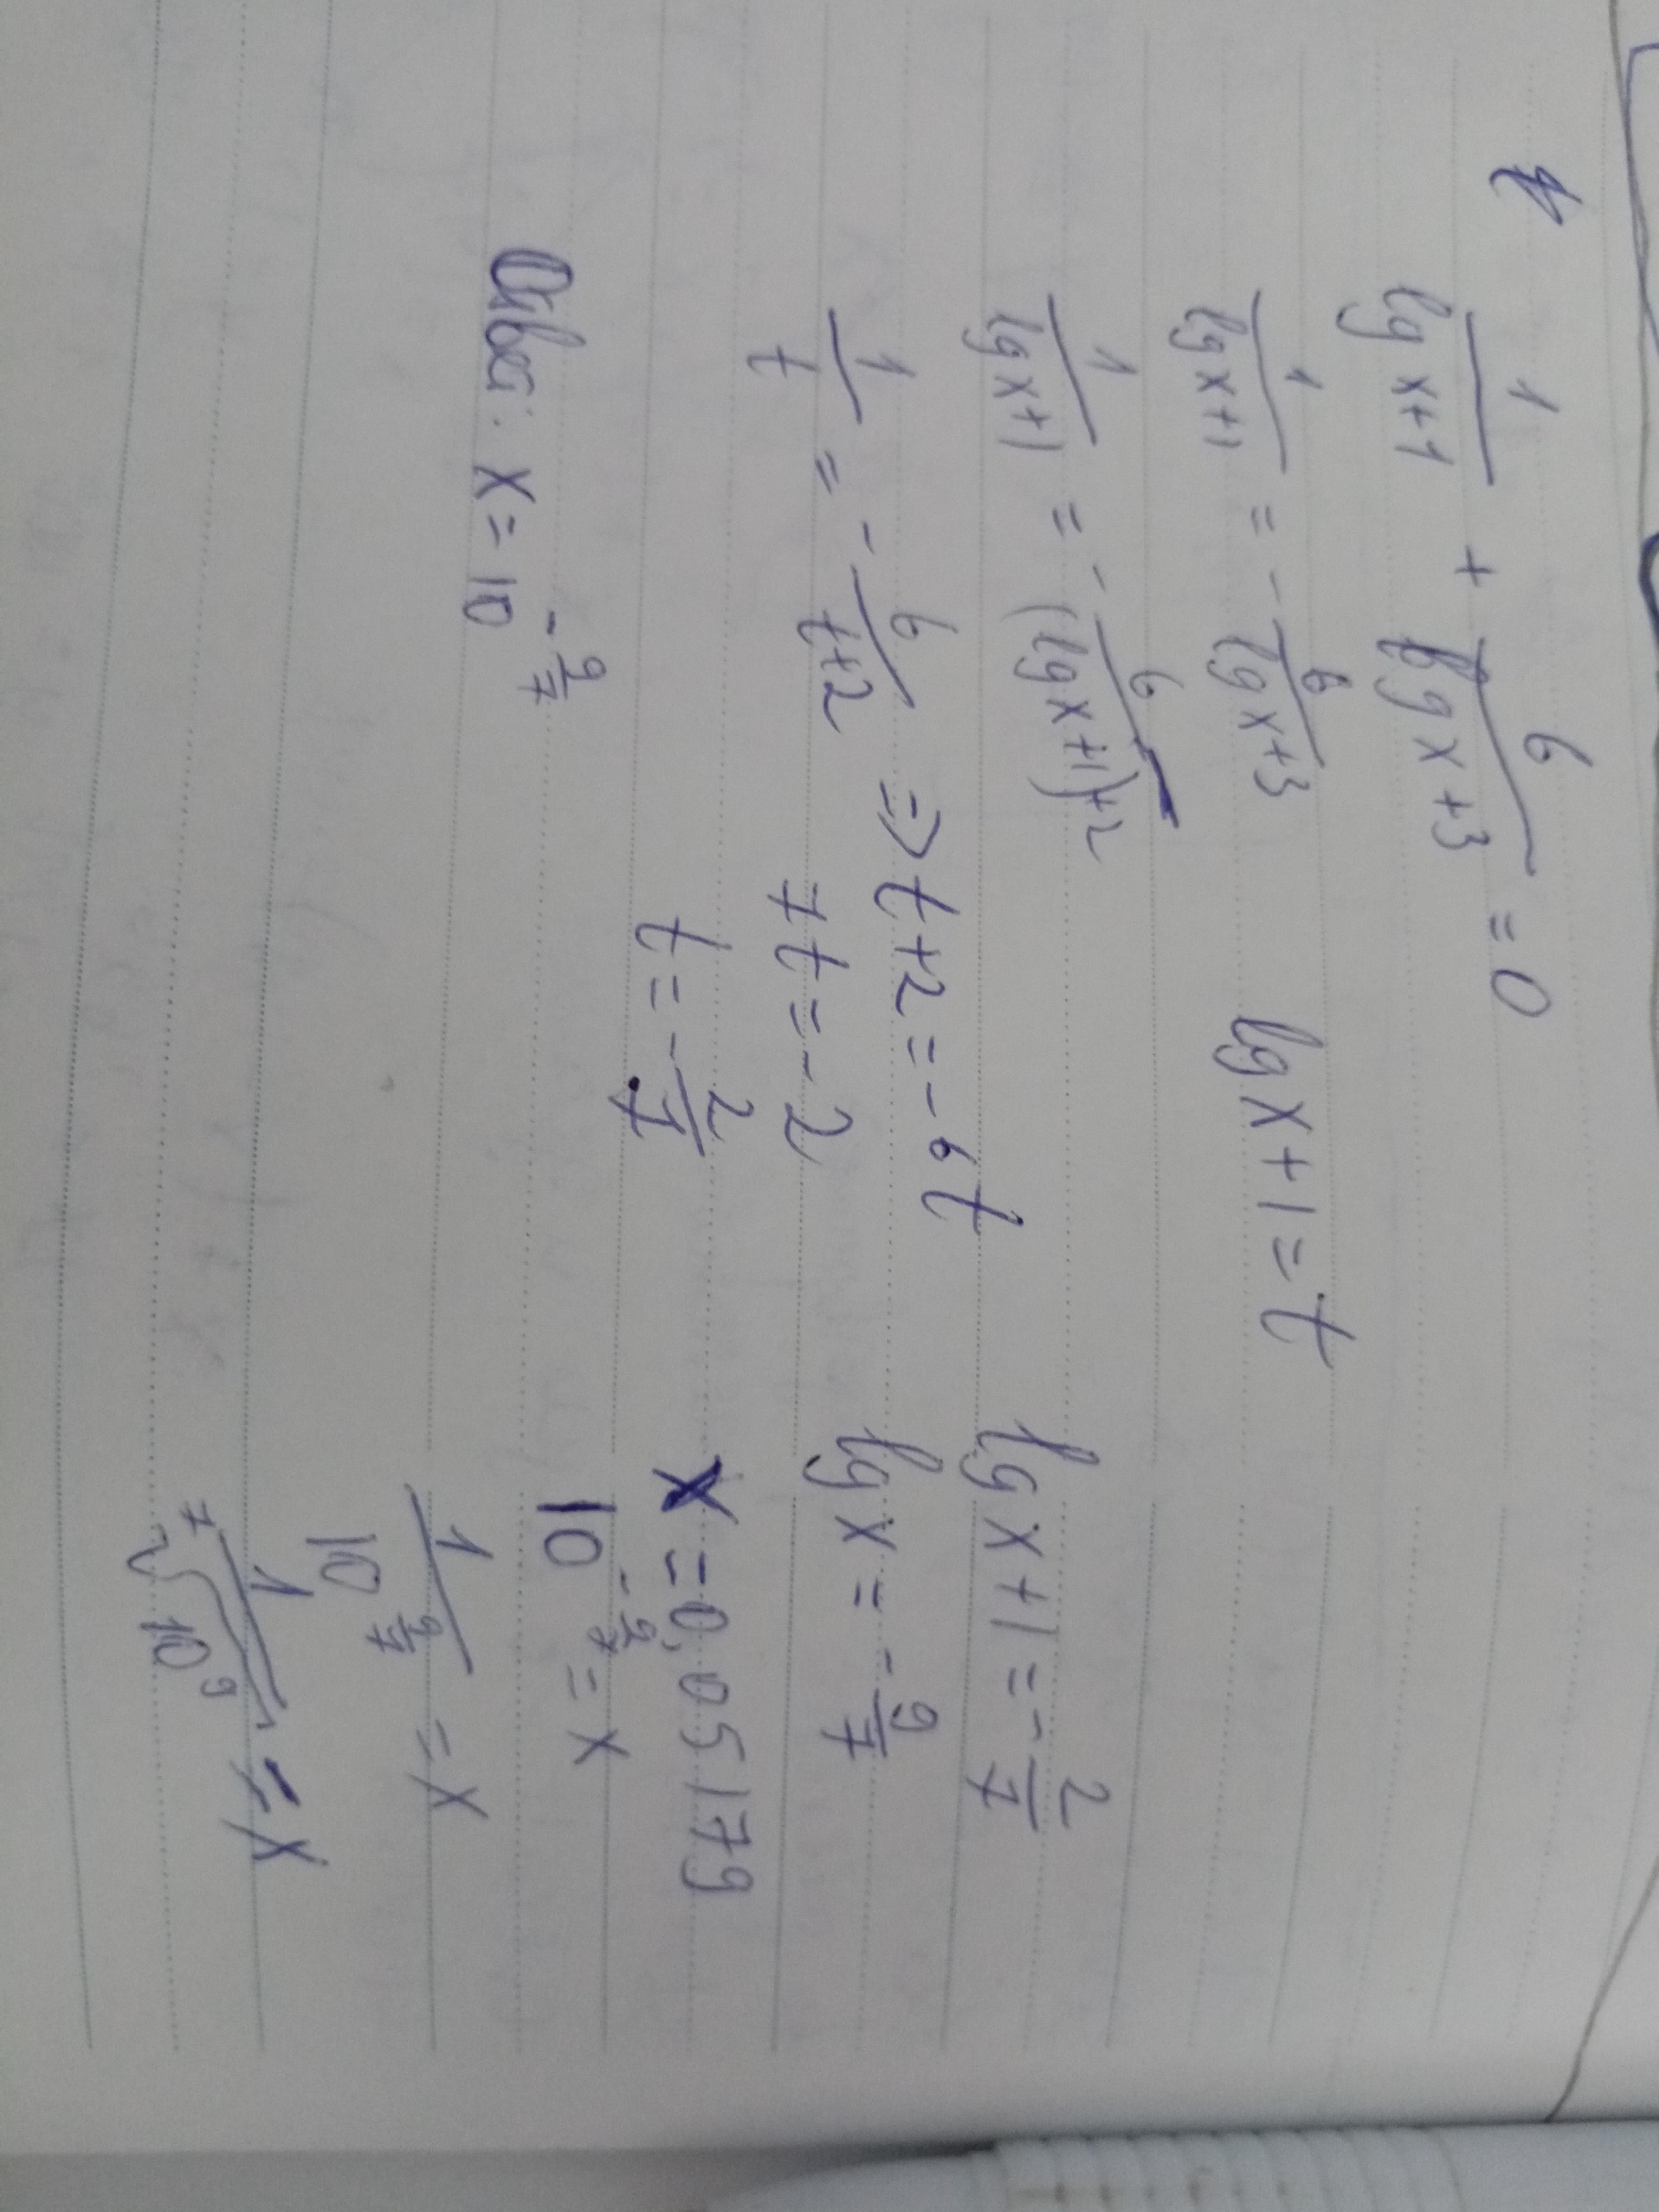 4
1/(lg x+1) + 6/(lg x+3) = 0
1/(lg x+1) = - 6/(lg x+3)
lg x+1=t
1/(lg x+1) = - 6/((lg x+1)+2)
1/t = - 6/(t+2) => t+2=-6t
7t=-2
t=-2/7
lg x+1=-2/7
lg x = -9/7
x=0,05179
10^(-9/7) = x
1/10^(9/7) = x
1/⁷√(10^9) = x
Ответ: x=10^(-9/7)